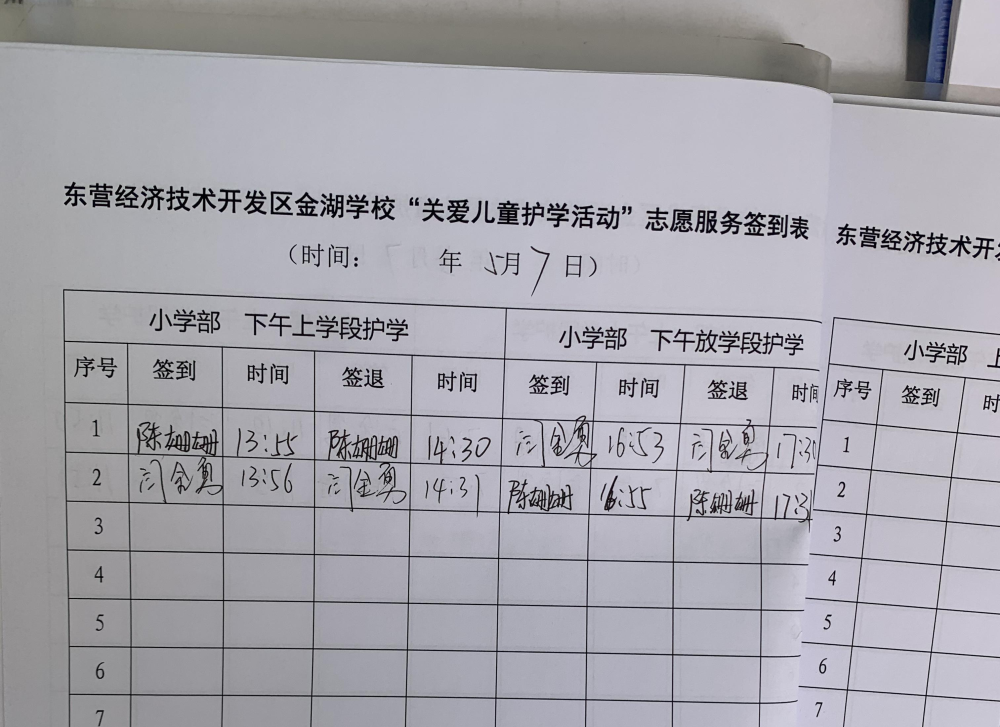 东营经济技术开发区金湖学校“关爱儿童护学活动”志愿服务签到表
（时间： 年 5月7日）
小学部 下午上学段护学 小学部 下午放学段护学
序号 签到 时间 签退 时间 签到 时间 签退 时间
1 陈姗姗 13:55 陈姗姗 14:30 闫金勇 16:53 闫金勇 17:30
2 闫金勇 13:56 闫金勇 14:31 陈姗姗 16:55 陈姗姗 17:3
3
4
5
6
7
东营经济技术开发
小学部 上
序号 签到 时
1
2
3
4
5
6
7